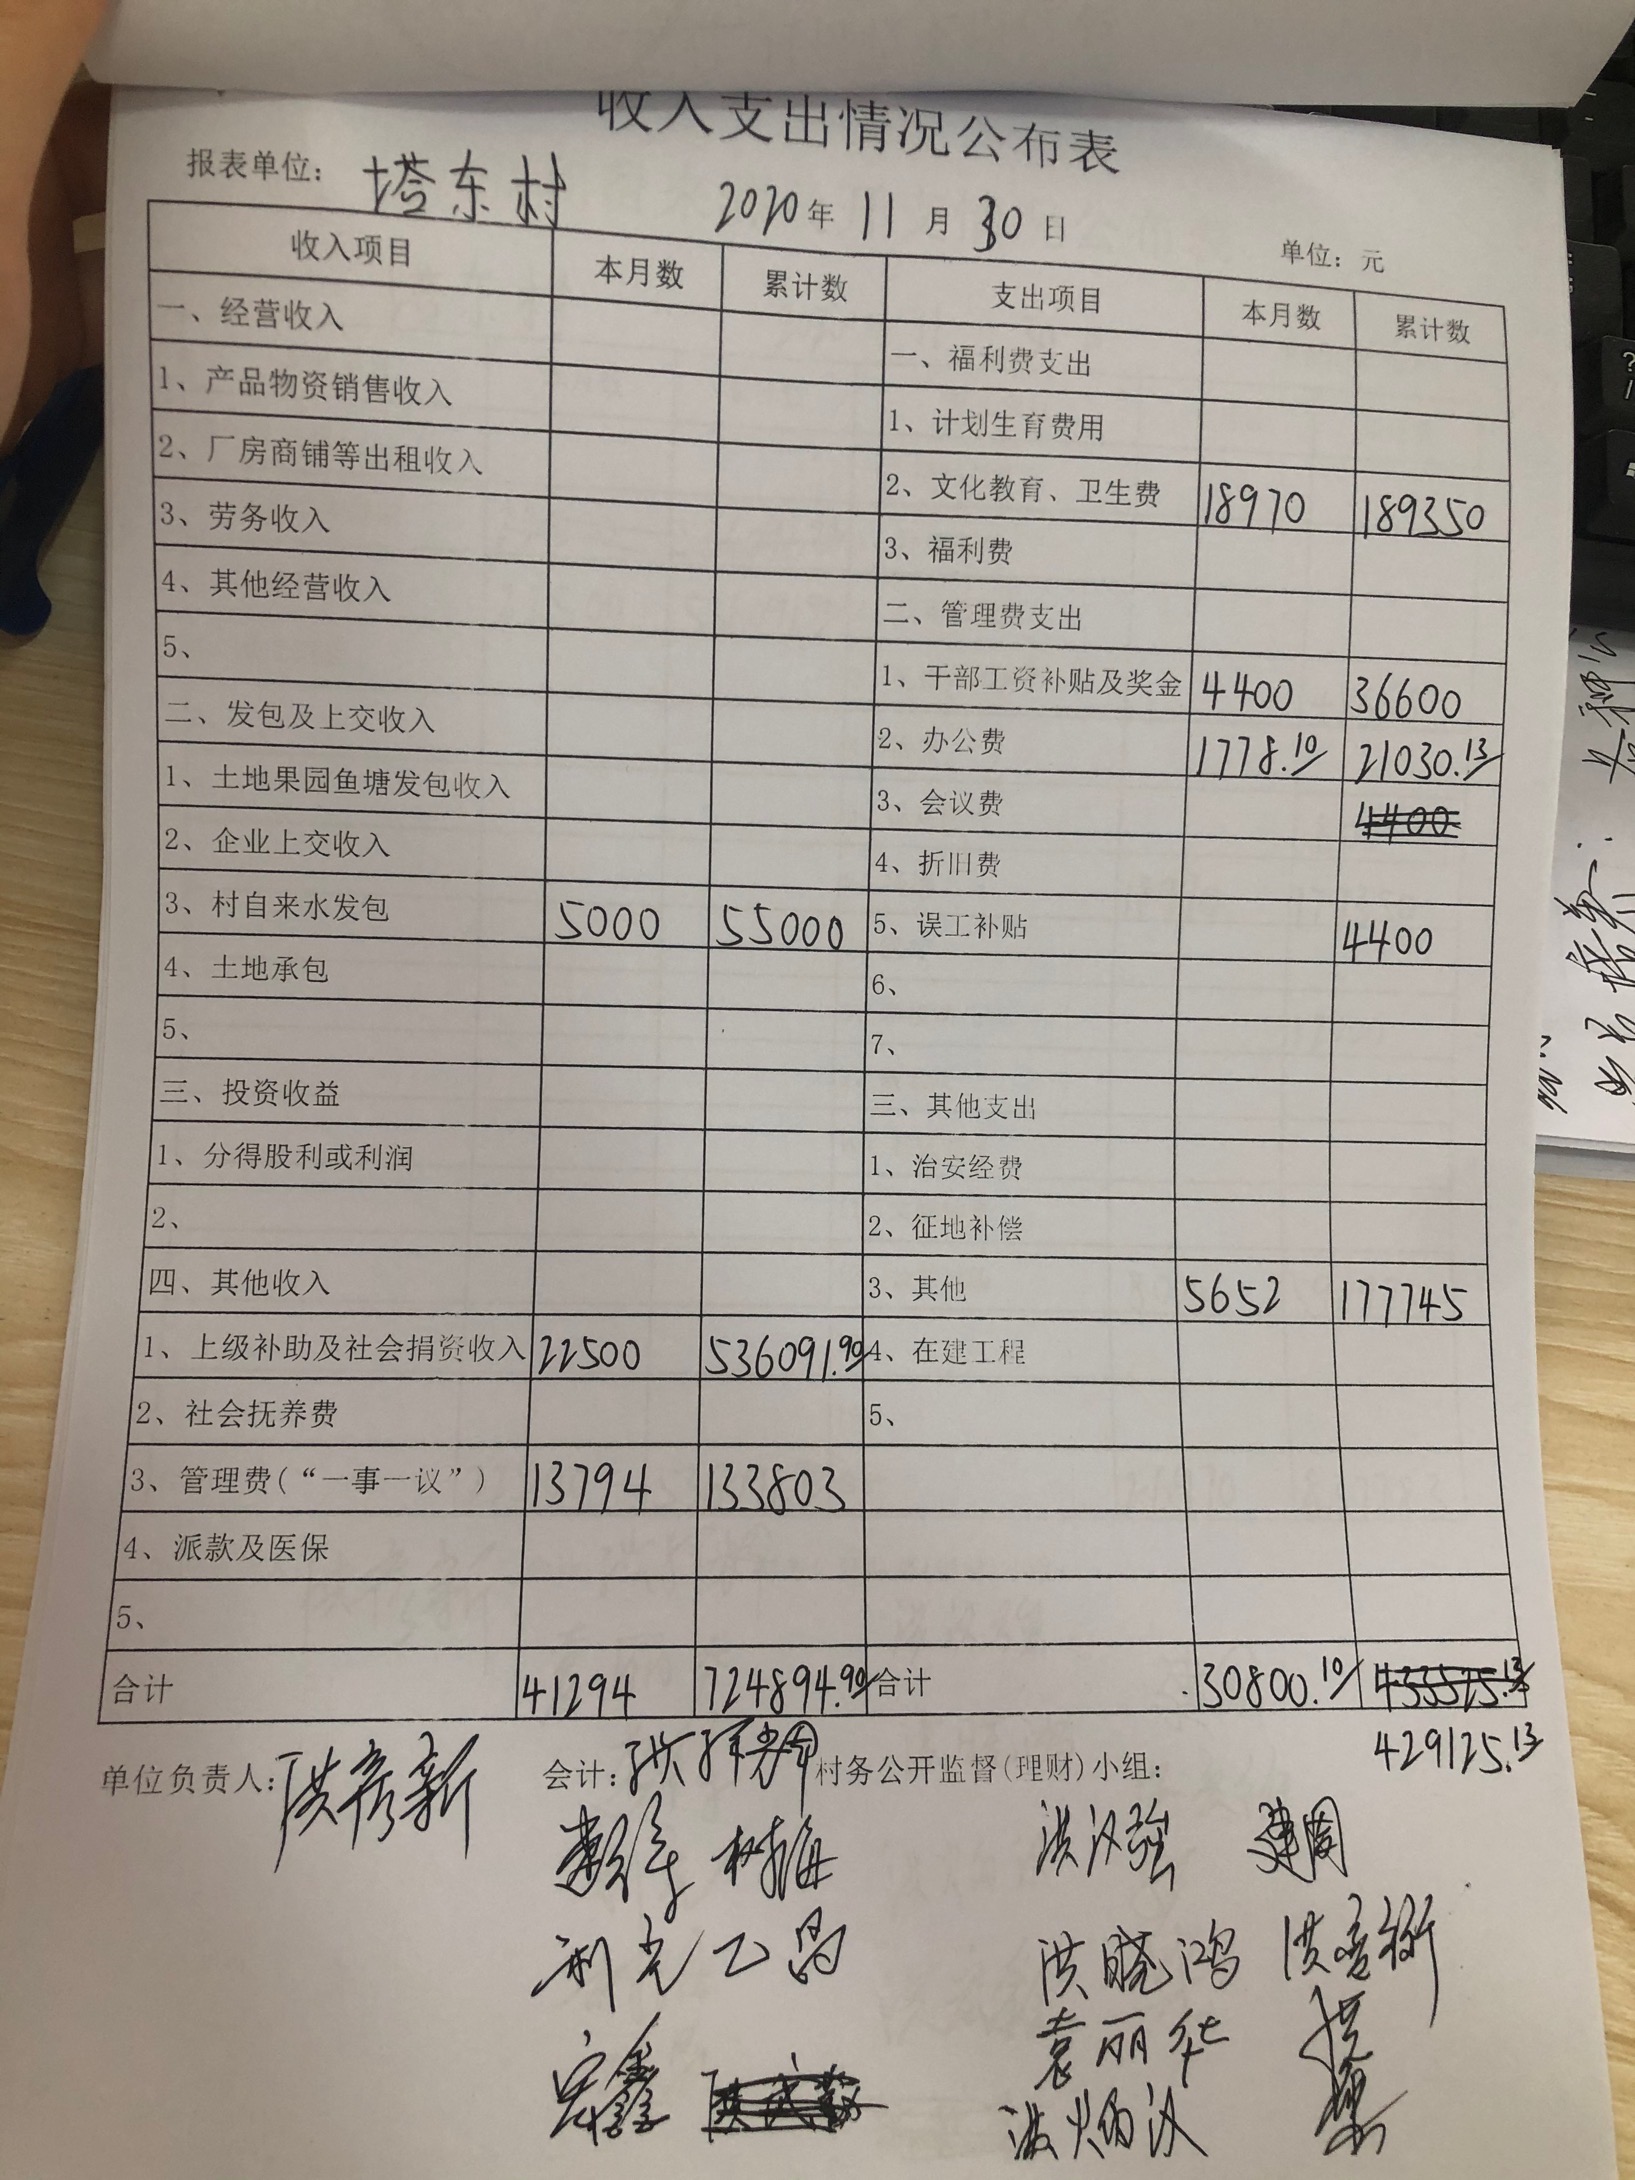 收入支出情况公布表
报表单位： 塔东村 2020年 11 月 30 日 单位：元
收入项目 本月数 累计数 支出项目 本月数 累计数
一、经营收入 一、福利费支出
1、产品物资销售收入 1、计划生育费用
2、厂房商铺等出租收入 2、文化教育、卫生费 18970 189350
3、劳务收入 3、福利费
4、其他经营收入 二、管理费支出
5、 1、干部工资补贴及奖金 4400 36600
二、发包及上交收入 2、办公费 1778.10 21030.13
1、土地果园鱼塘发包收入 3、会议费 4400
2、企业上交收入 4、折旧费
3、村自来水发包 5000 55000 5、误工补贴 4400
4、土地承包 6、
5、 7、
三、投资收益 三、其他支出
1、分得股利或利润 1、治安经费
2、 2、征地补偿
四、其他收入 3、其他 5652 177745
1、上级补助及社会捐资收入 22500 536091.90 4、在建工程
2、社会抚养费 5、
3、管理费(“一事一议”) 13794 133803
4、派款及医保
5、
合计 41294 724894.90 合计 30800.10 433525.13
429125.13
单位负责人：洪彦新 会计： 村务公开监督(理财)小组：
树海 洪汉强 建国
利光 乙昌 洪晓鸿
宏鑫 袁丽华
炳汉